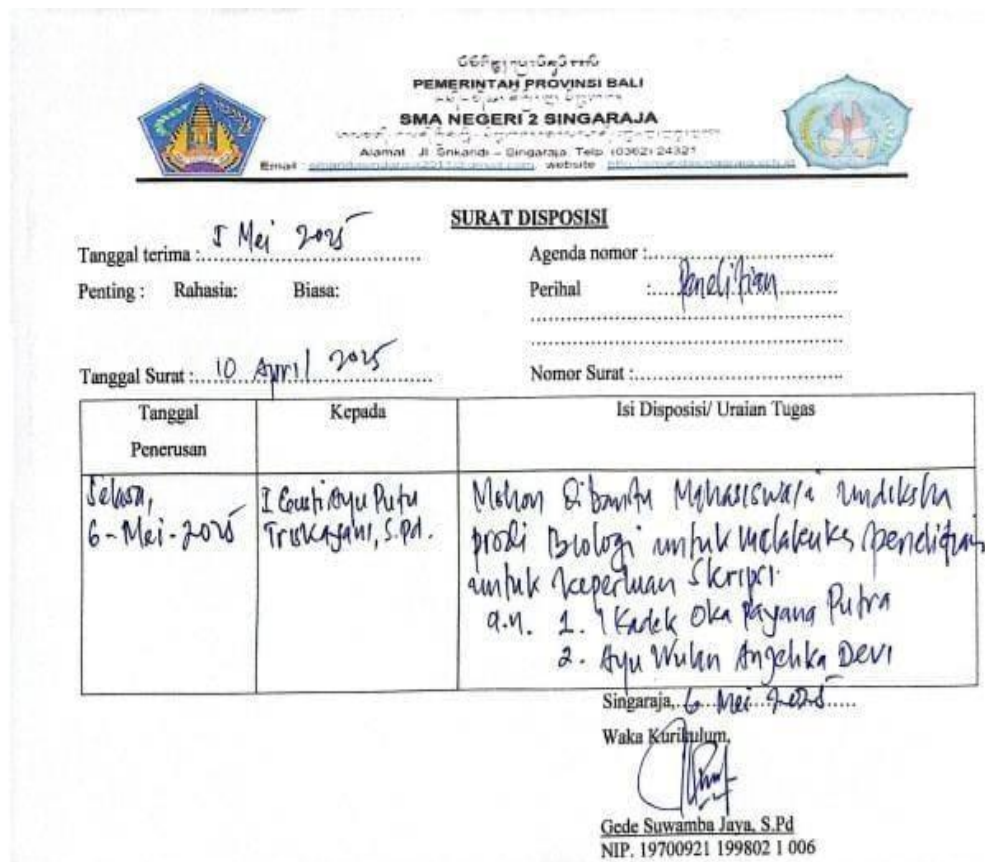 PEMERINTAH PROVINSI BALI
SMA NEGERI 2 SINGARAJA
Alamat : Jl. Srikandi – Singaraja, Telp. (0362) 24321
Email : website :
SURAT DISPOSISI
Tanggal terima : 5 Mei 2025
Agenda nomor :
Penting : Rahasia: Biasa:
Perihal : Penelitian
Tanggal Surat : 10 April 2025
Nomor Surat :
Tanggal Penerusan
Kepada
Isi Disposisi/ Uraian Tugas
Selasa,
6-Mei-2025
I Gusti Ayu Putu
Triskayani, S.Pd.
Mohon Dibantu Mahasiswa/i Undiksha
prodi Biologi untuk melakukan penelitian
untuk keperluan Skripsi.
a.n. 1. I Kadek Oka Payana Putra
2. Ayu Wulan Angelika Devi
Singaraja, 6 Mei 2025
Waka Kurikulum,
Gede Suwamba Jaya, S.Pd
NIP. 19700921 199802 1 006